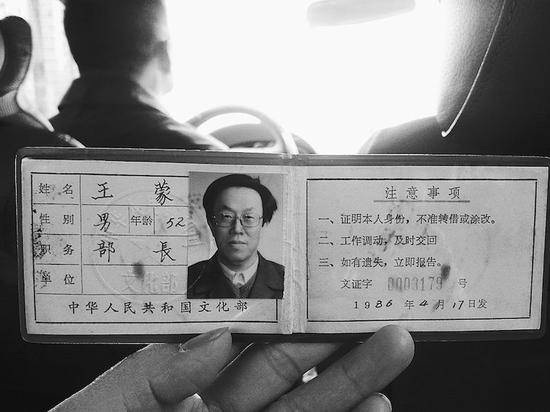 姓名 王蒙
性别 男 年龄 52
职务 部長
单位 文化部
中华人民共和国文化部
注意事项
一、证明本人身份，不准转借或涂改。
二、工作调动，及时交回
三、如有遗失，立即报告。
文证字 0003179 号
1986年4月17日发